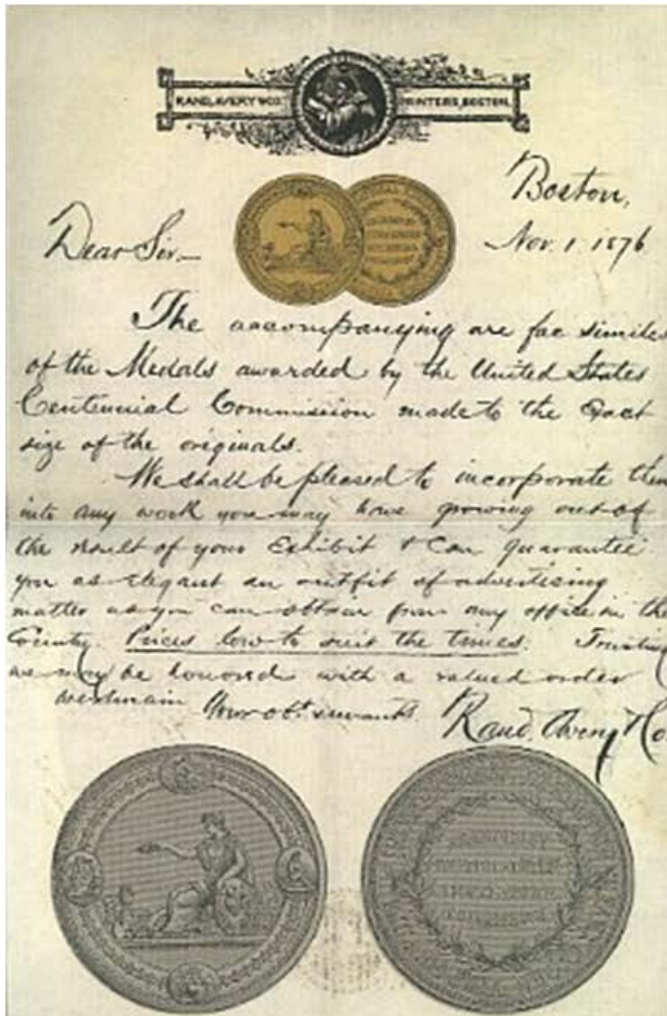 RAND, AVERY & CO. PRINTERS, BOSTON.
Boston,
Nov. 1. 1876.
Dear Sir—
The accompanying are fac similes
of the Medals awarded by the United States
Centennial Commission made to the Exact
size of the originals.
We shall be pleased to incorporate them
into any work you may have growing out of
the result of your Exhibit & Can guarantee
you as elegant an outfit of advertising
matter as you can obtain from any office in the
County. Prices low to suit the times. Trusting
we may be honored with a valued order
we remain Your obt servants
Rand, Avery & Co